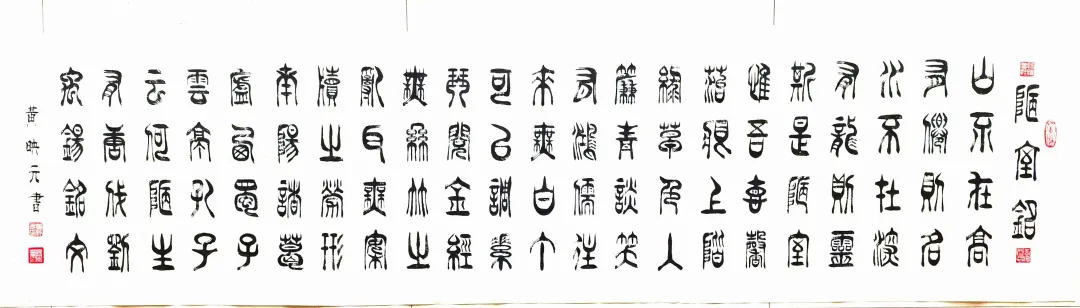 陋室銘
山不在高
有僊則名
水不在深
有龍則靈
斯是陋室
惟吾惪馨
苔痕上階
綠草色入
簾青談笑
有鴻儒往
來無白丁
可以調素
琴閱金經
無絲竹之
亂耳無案
牘之勞形
南陽諸葛
廬西蜀子
雲亭孔子
云何陋之
有唐代劉
禹錫銘文
黃映元書